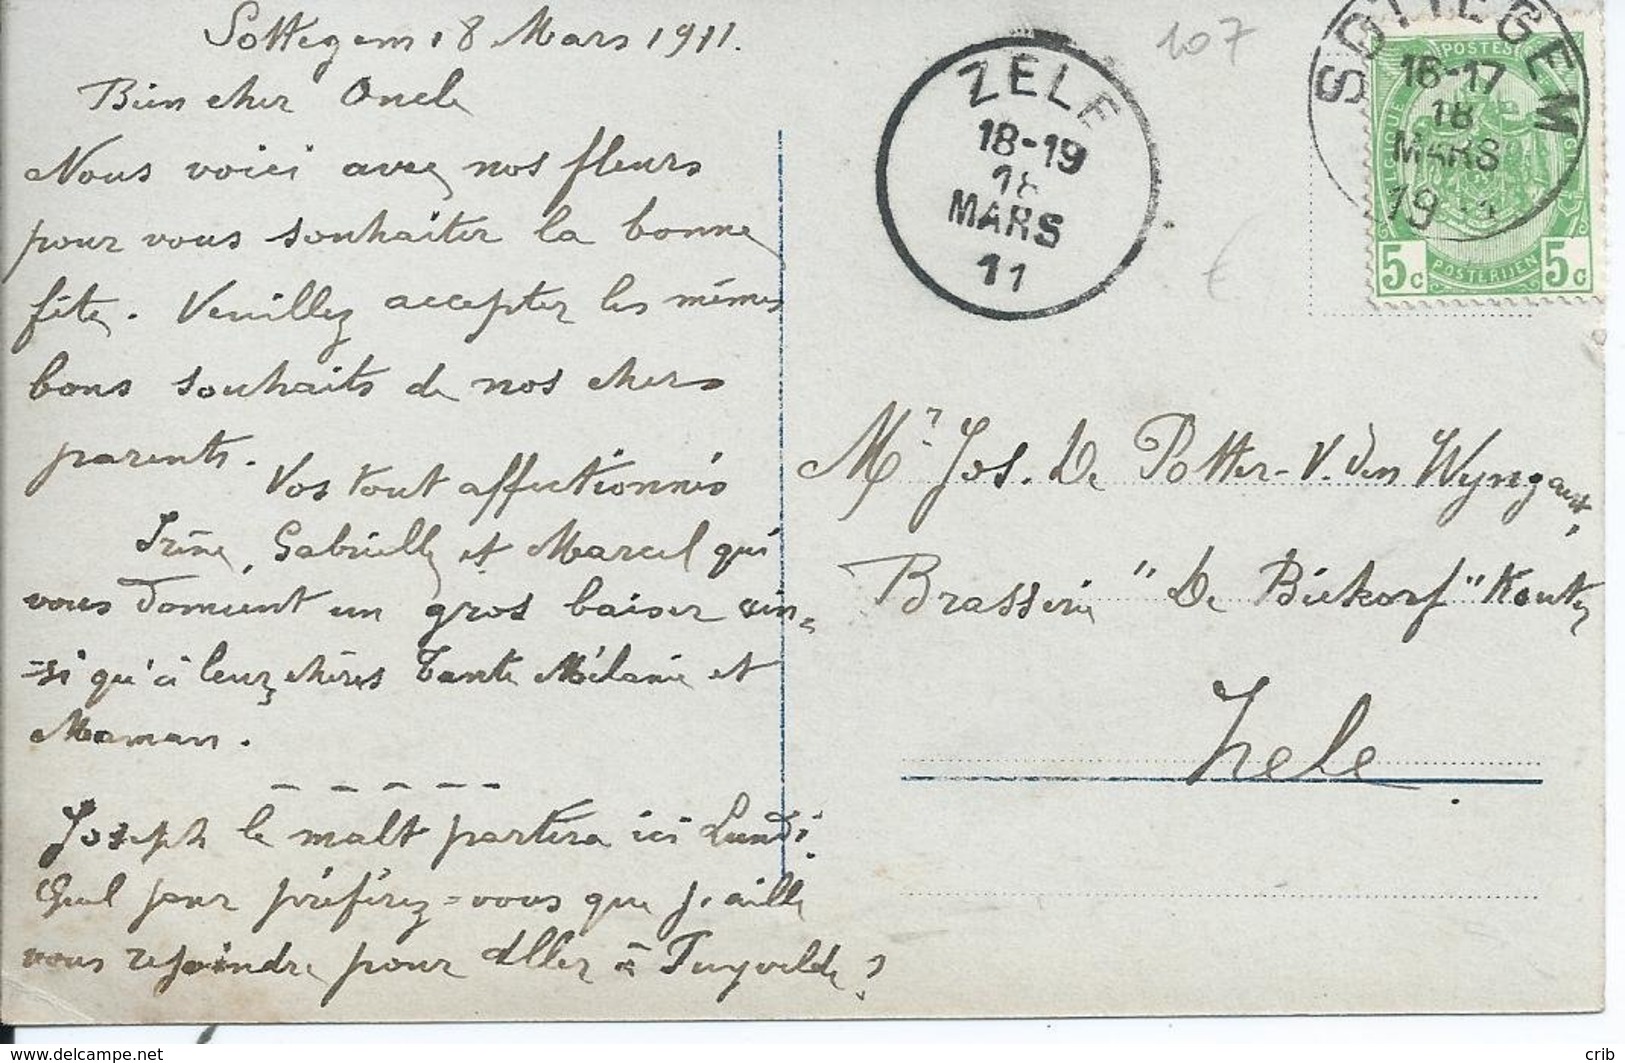 Sottegem 18 Mars 1911.
Bien cher Oncle
Nous voici avec nos fleurs
pour vous souhaiter la bonne
fête. Veuillez accepter les mêmes
bons souhaits de nos chers
parents.
Vos tout affectionnés
Irène, Gabrielle et Marcel qui
vous donnent un gros baiser ain=
=si qu'à leurs chères Tante Mélanie et
Maman.
Joseph le malt partira ici Lundi.
Quel jour préférez=vous que j'aille
vous rejoindre pour aller à Puyvelde?
107
ZELE
18-19
18
MARS
11
SOTTEGEM
16-17
18
MARS
19
POSTES
BELGIQUE
BELGIË
5c POSTERIJEN 5c
Mr Jos. De Potter-V. den Wyngaert,
Brasserie "De Biekorf" Kouter
Zele.
https://www.delcampe.net
crib